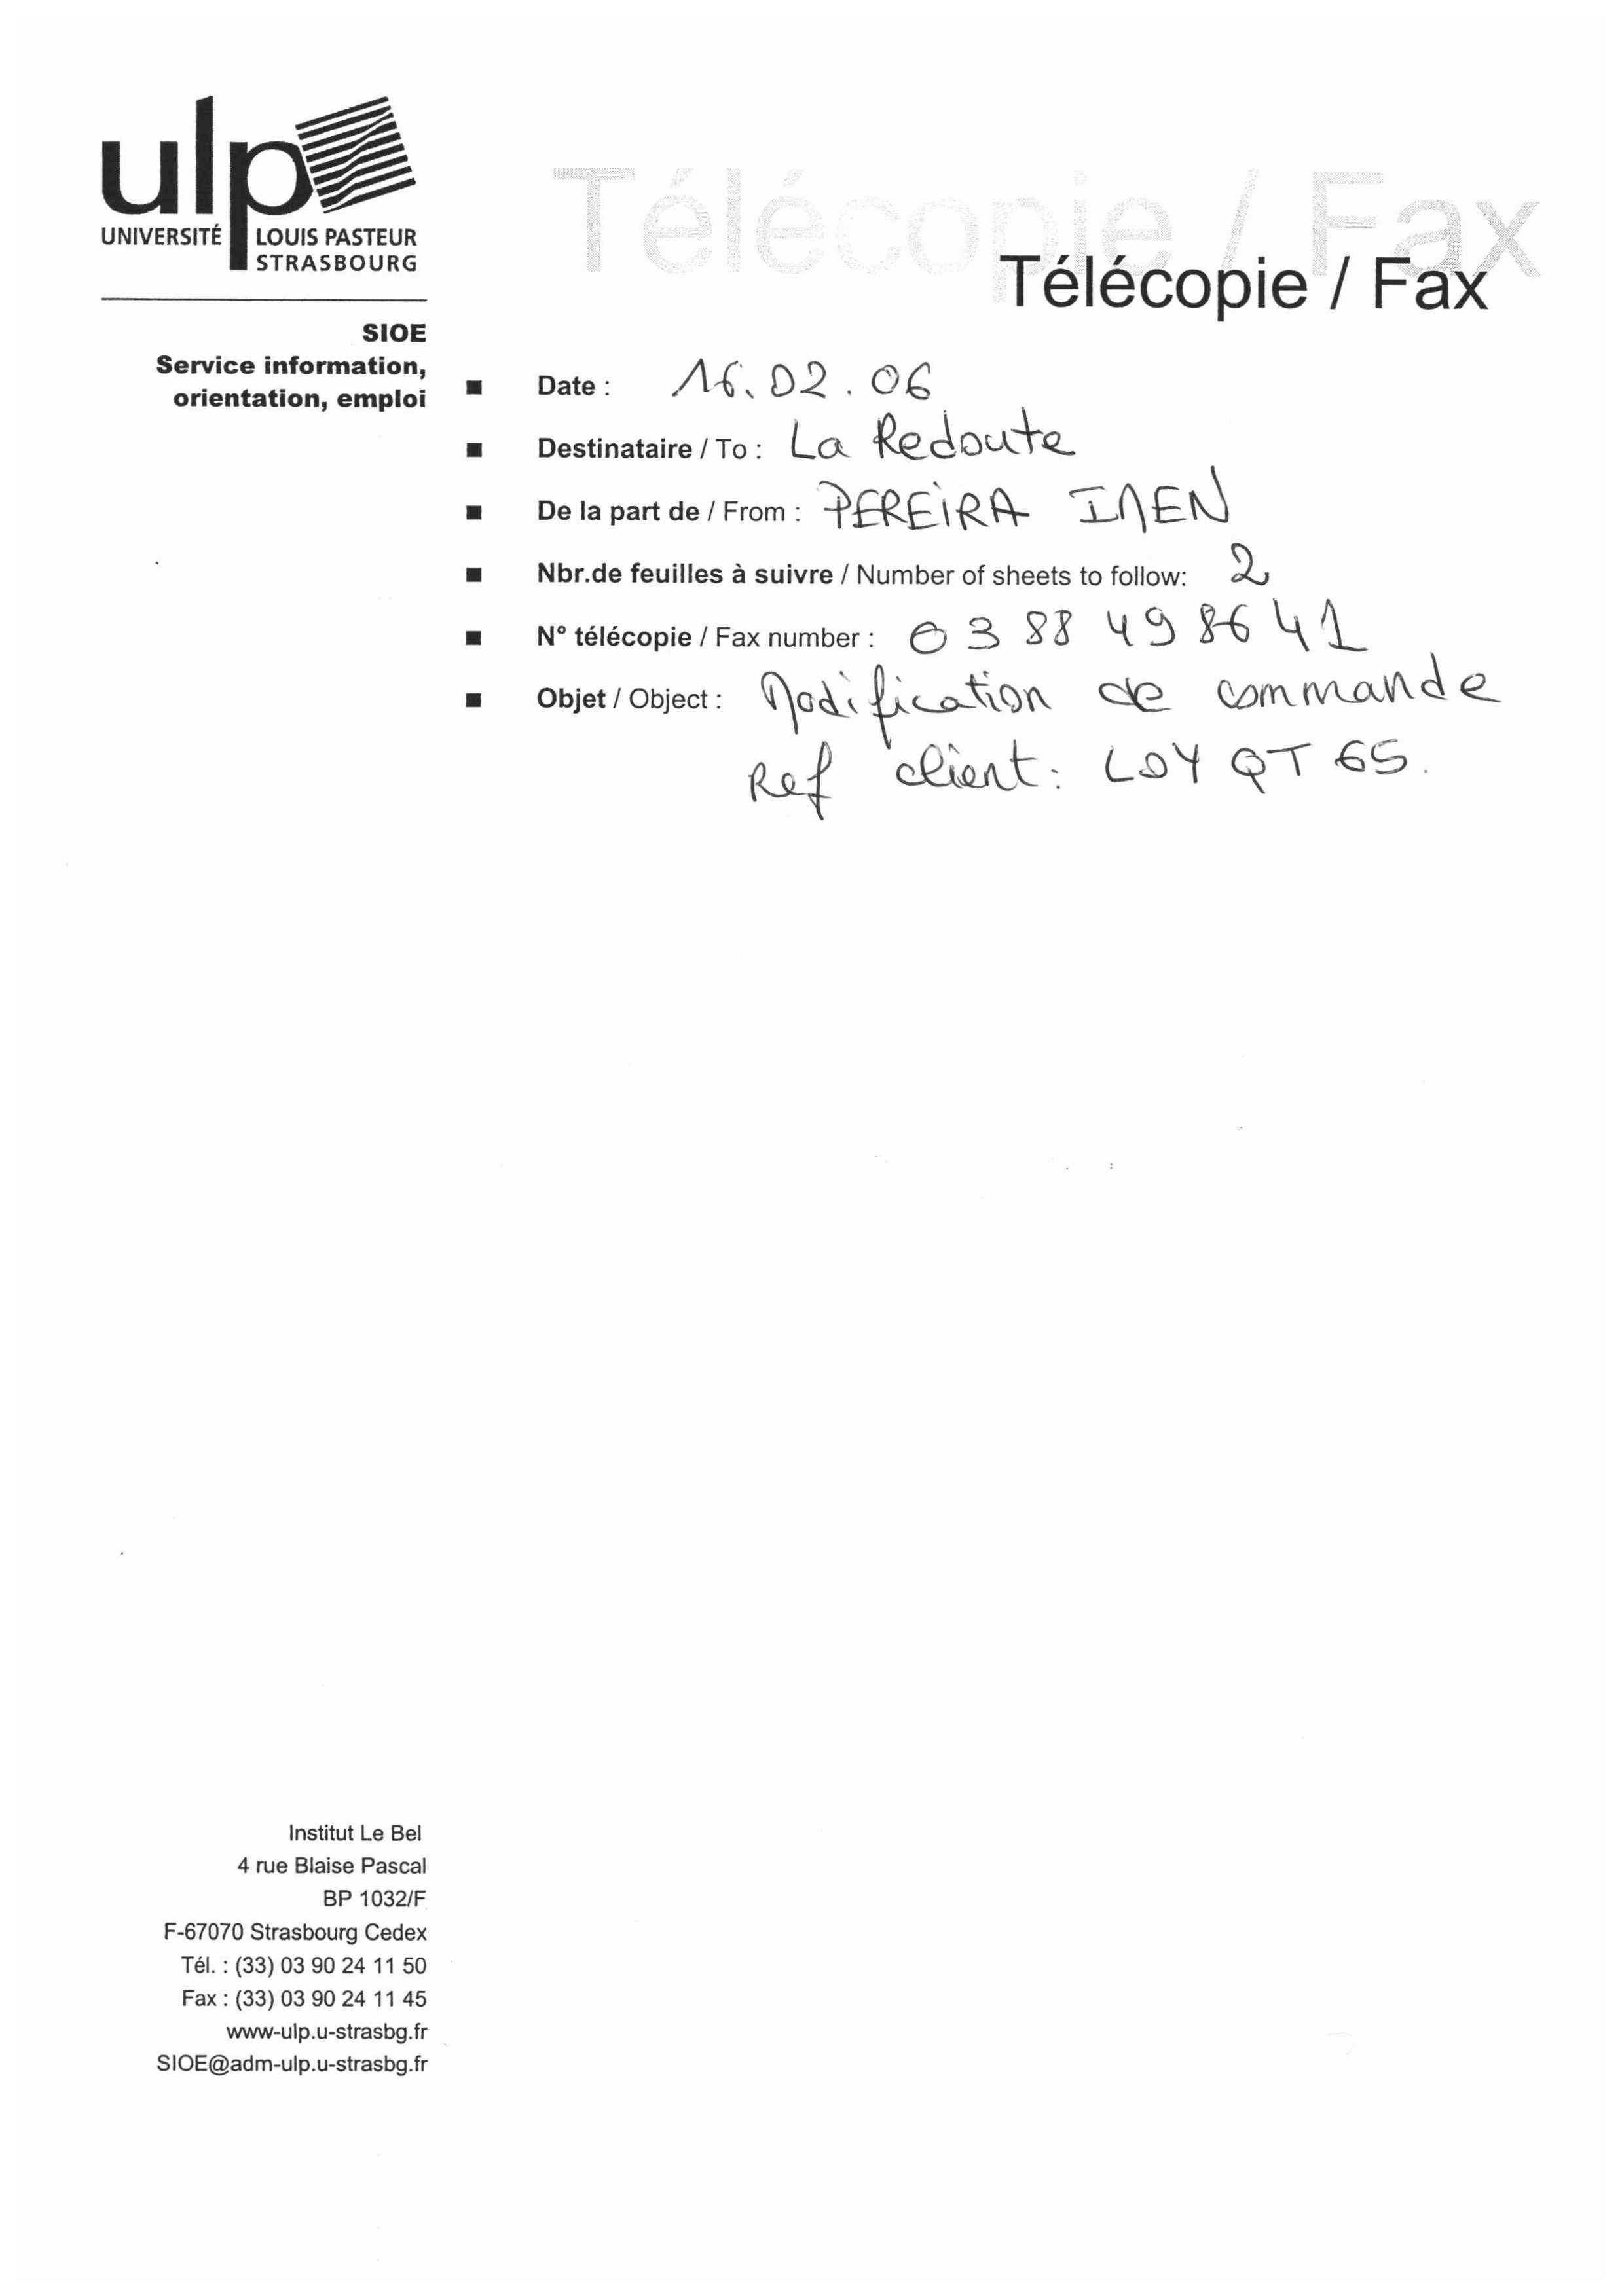 ulp
UNIVERSITÉ LOUIS PASTEUR
STRASBOURG
Télécopie / Fax
Télécopie / Fax
SIOE
Service information,
orientation, emploi
Date : 16.02.06
Destinataire / To : La Redoute
De la part de / From : PEREIRA IMEN
Nbr.de feuilles à suivre / Number of sheets to follow: 2
N° télécopie / Fax number : 03 88 49 86 41
Objet / Object : Modification de commande
Ref client : LOY QT 65.
Institut Le Bel
4 rue Blaise Pascal
BP 1032/F
F-67070 Strasbourg Cedex
Tél. : (33) 03 90 24 11 50
Fax : (33) 03 90 24 11 45
www-ulp.u-strasbg.fr
SIOE@adm-ulp.u-strasbg.fr